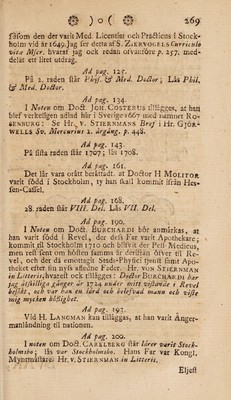 ) o ( 269
såsom den der varit Med. Licentiat och Practicus i Stock-
holm vid år 1649. Jag ser detta af S. ZIERVOGELS Curriculo
vitæ Mscr. hvaraf jag ock redan ofvanföre p. 257. med-
delåt ett litet utdrag.
Ad pag. 125.
På 2. raden står Phys. & Med. Doctor; Lås Phil.
& Med. Doctor.
Ad pag. 134.
I Noten om Doct. JOH. COSTERUS tillägges, at han
blef verkeligen adlad här i Sverige 1667 med namnet RO-
SENBURG: Se Hr. V. STIERNMANS Bref i Hr. GJÖR-
WELLS Sv. Mercurius 2. årgång. p. 448.
Ad pag. 143.
På sista raden står 1707; läs 1708.
Ad pag. 161.
Det lår vara orätt berättadt, at Doctor H MOLITOR
varit född i Stockholm, ty han skall kommit ifrån Hes-
sen-Cassel.
Ad pag. 168.
28. raden står VIII. Del. Lås VII. Del.
Ad pag. 190.
I Noten om Doct. BURCHARDI bör anmärkas, at
han varit född i Revel, der des Far varit Apothekare;
kommit til Stockholm 1710 och blifvit der Pest-Medicus,
men rest sent om hösten samma år dersifrån öfver til Re-
vel, och der då emottagit Stads-Physici tjenst samt Apo-
theket efter sin nyss aflidne Fader. Hr. VON STIERNMAN
in Litteris, hvarest ock tillägges: Doctor BURCHARDI har
jag åtskillige gånger år 1724 under mitt vistande i Revel
besökt, och var han en lård och belefvad mann och viste
mig mycken höflighet.
Ad pag. 193.
Vid H. LANGMAN kan tilläggas, at han varit Anger-
manländing til nationen.
Ad pag. 200.
I noten om Doct. CARLBERG står lärer varit Stock-
holmsbo; läs var Stockholmsbo. Hans Far var Kongl.
Myntmästare. Hr. V. STIERNMAN in Litteris.
Eljest